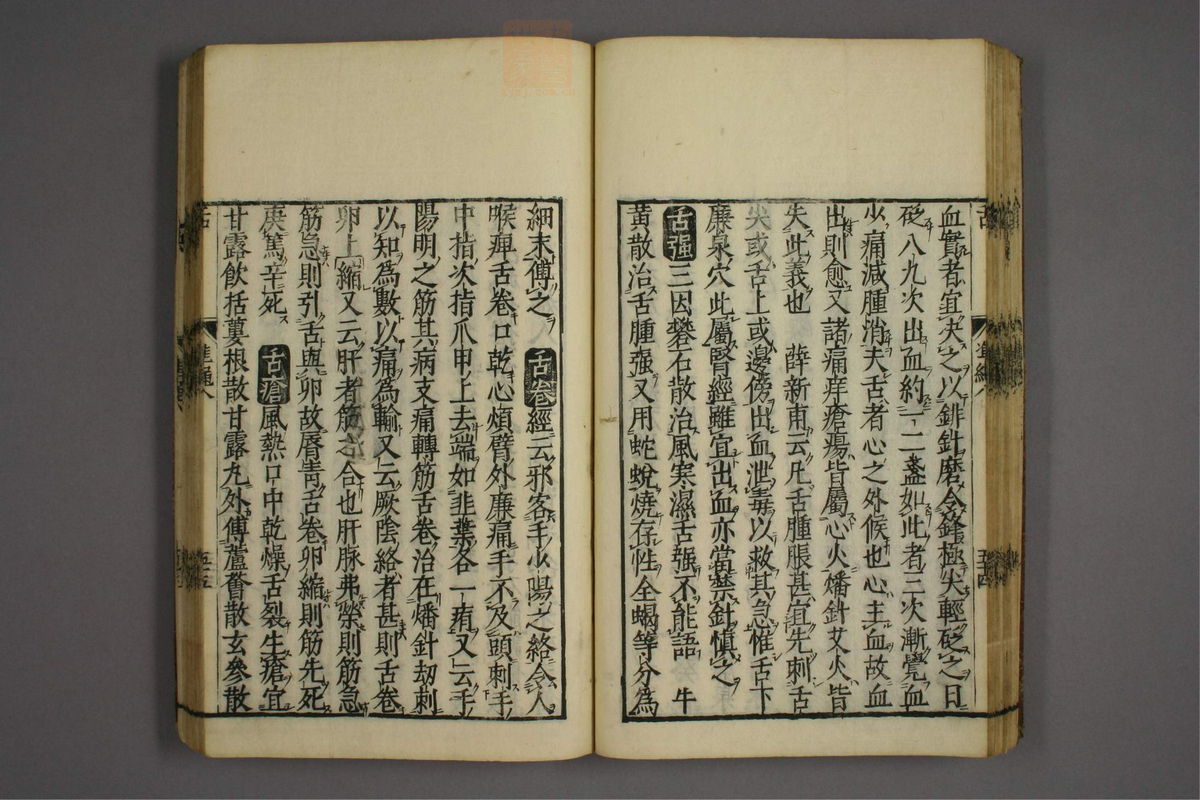 血實者宜決之以鈹針磨令鋒極尖輕砭之日
砭八九次出血約一二盞如此者三次漸覺血
少痛減腫消夫舌者心之外候也心主血故血
出則愈又諸痛痒瘡瘍皆屬心火燔針艾火皆
失此義也　薛新甫云凡舌腫脹甚宜先刺舌
尖或舌上或邊傍出血泄毒以救其急惟舌下
廉泉穴此屬腎經雖宜出血亦當禁針慎之
舌强三因礬石散治風寒濕舌强不能語　牛
黄散治舌腫强又用蛇蛻燒存性全蝎等分爲
細末傅之　舌卷經云邪客手少陽之絡令人
喉痺舌卷口乾心煩臂外廉痛手不及頭刺手
中指次指爪甲上去端如韭葉各一痏又云手
陽明之筋其病支痛轉筋舌卷治在燔針劫刺
以知爲數以痛爲輸又云厥陰絡者甚則舌卷
卵上縮又云肝者筋之合也肝脉弗榮則筋急
筋急則引舌與卵故唇青舌卷卵縮則筋先死
庚篤辛死　舌瘡風熱口中乾燥舌裂生瘡宜
甘露飲括蔞根散甘露丸外傅蘆薈散玄參散